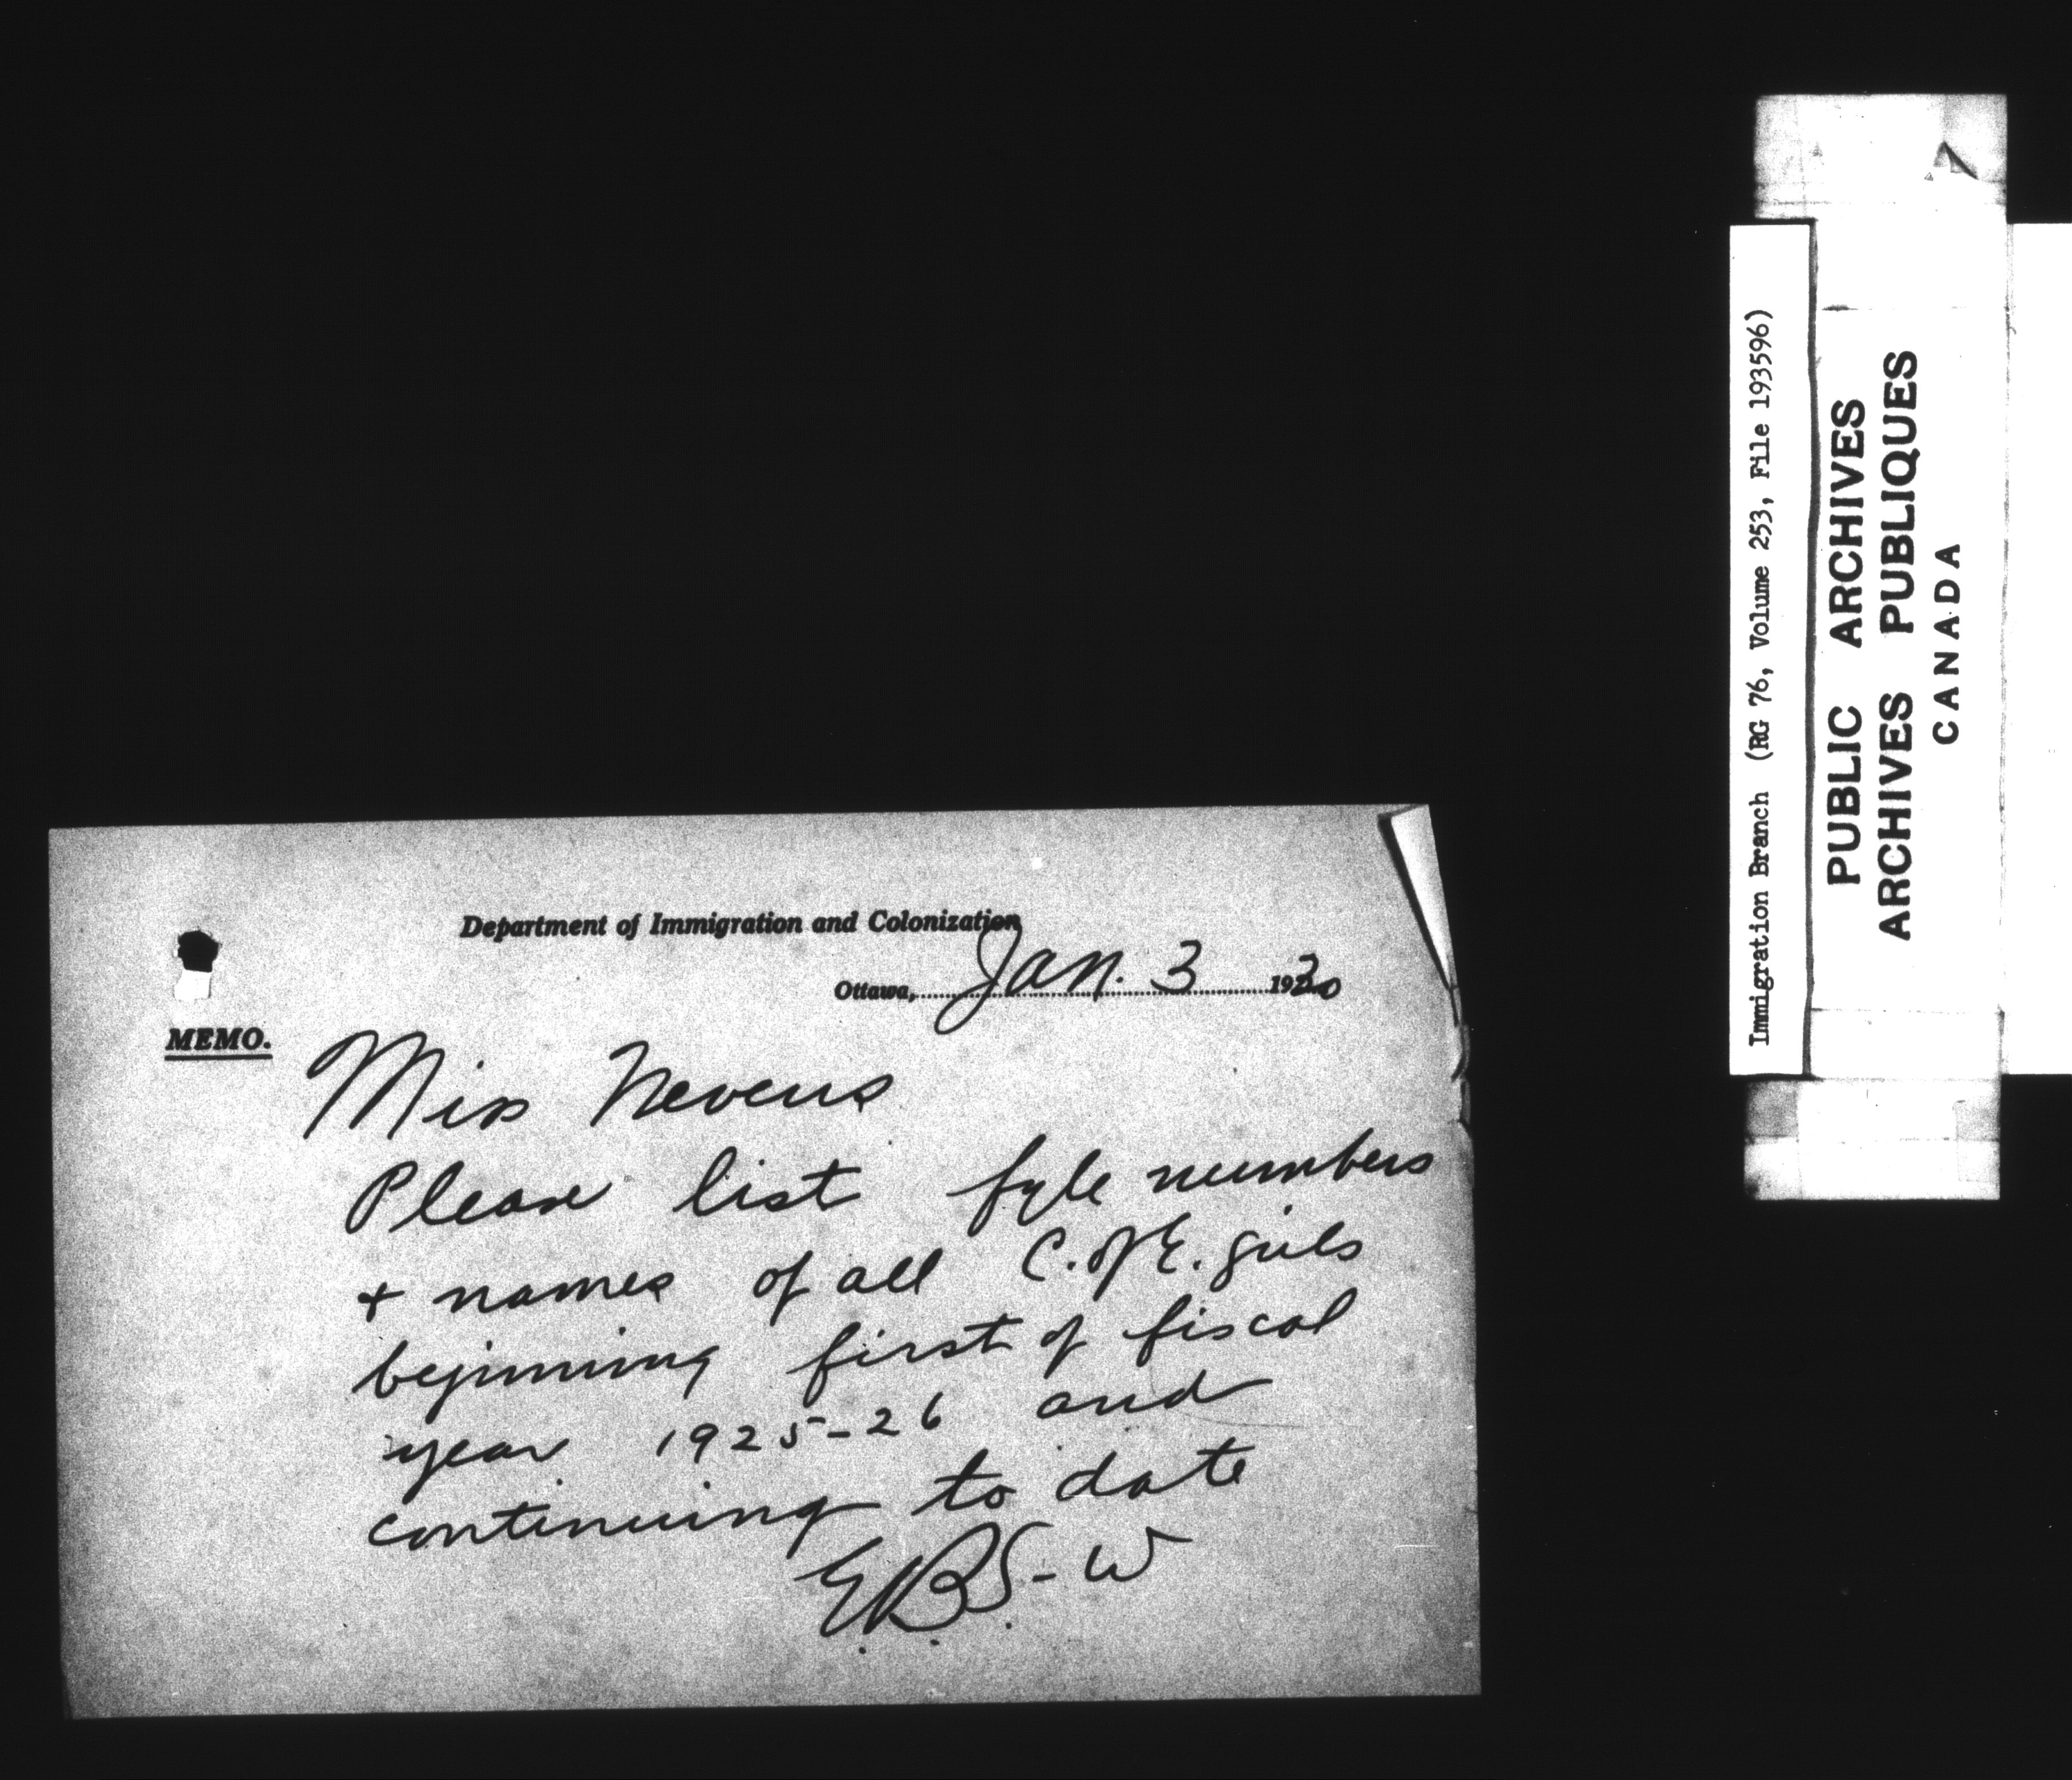 Department of Immigration and Colonization
Ottawa, Jan. 3 1930
MEMO.
Miss Nevens
Please list fyle numbers
+ names of all C. of E. girls
beginning first of fiscal
year 1925-26 and
continuing to date
E.B.S.-W
Immigration Branch (RG 76, Volume 253, File 193596)
PUBLIC ARCHIVES
ARCHIVES PUBLIQUES
CANADA